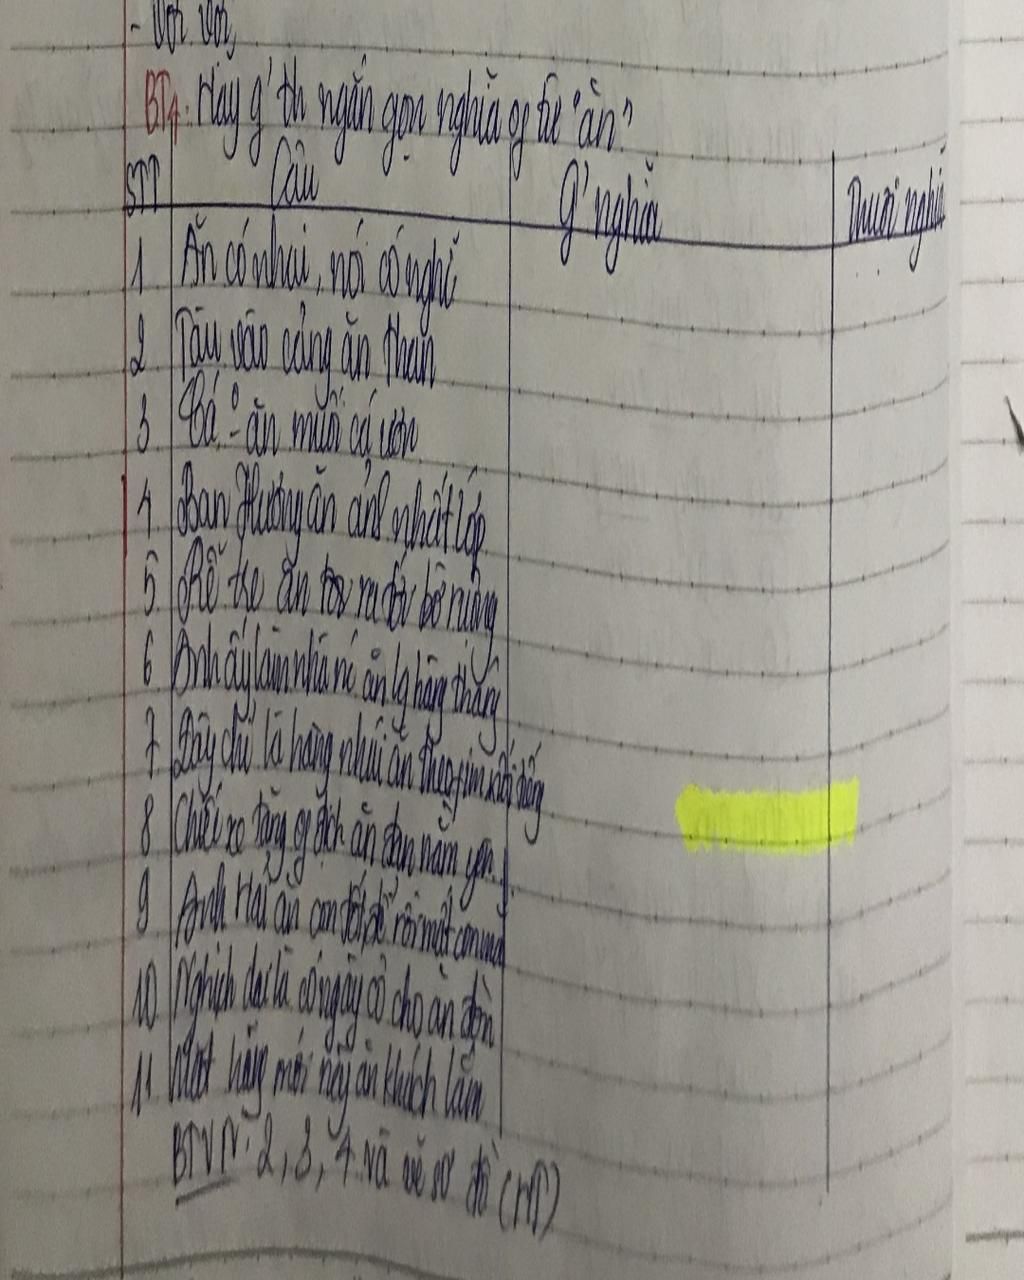 BT4: Hãy g' th ngắn gọn nghĩa of từ "ăn"?
STT Câu G' nghĩa Thuộc nghĩa
1 Ăn có nhai, nói có nghĩ
2 Tàu vào cảng ăn than
3 Cá ăn muối cá ươn
4 Bạn Hương ăn ảnh nhất lớp
5. Rễ tre ăn ra tới bờ ruộng
6 Anh ấy làm nhà nc ăn lg hàng tháng
7 Đây chỉ là hàng nhái ăn theo
8 Chiếc xe tăng of địch ăn đạn nằm yên.
9 Anh Hai ăn con tốt để rồi mất con mã
10 Nghịch dại là có ngày cô cho ăn đòn
11. Mặt hàng mới này ăn khách lắm
BTVN: 2, 3, 4 và vẽ sơ đồ (HT)